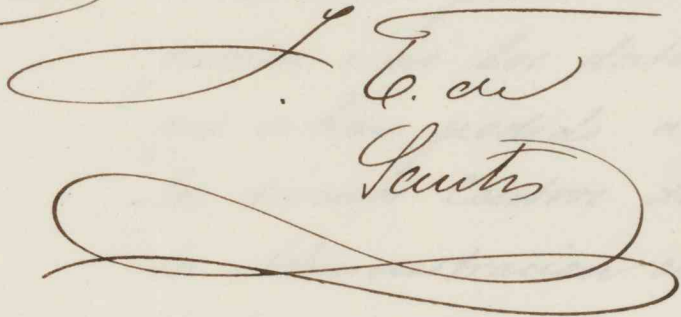 J. E. de
Santos